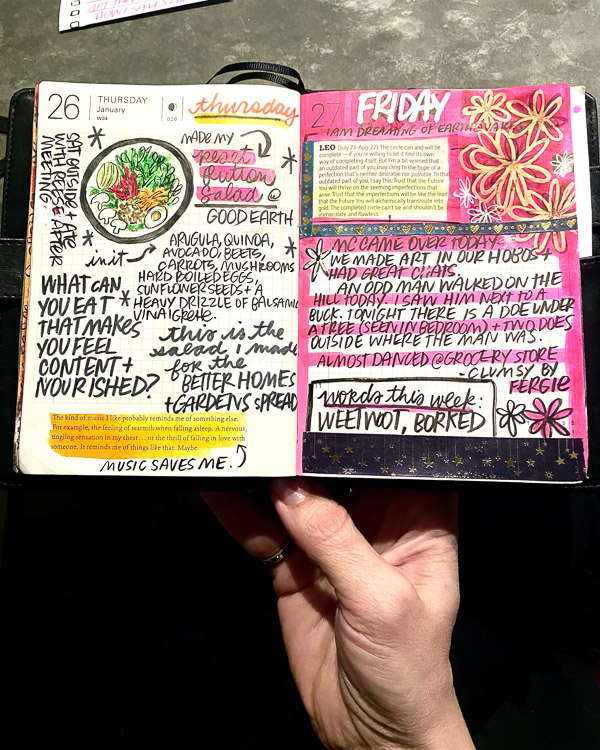 26
THURSDAY
January
W04
026
thursday
SAT OUTSIDE + ATE
WITH AFTER
MEETING
MADE MY
reset
salad @
GOOD EARTH
in it
ARUGULA, QUINOA,
AVOCADO, BEETS,
CARROTS, MUSHROOMS
HARD BOILED EGGS,
SUNFLOWER SEEDS + A
HEAVY DRIZZLE OF BALSAMIC
VINAIGRETTE.
WHAT CAN
YOU EAT
THAT MAKES
YOU FEEL
CONTENT +
NOURISHED?
this is the
salad I made
for the
BETTER HOMES
+ GARDENS SPREAD
The kind of music I like probably reminds me of something else.
For example, the feeling of warmth when falling asleep. A nervous,
tingling sensation in my chest . . . or the thrill of falling in love with
someone. It reminds me of things like that. Maybe.
MUSIC SAVES ME.
27
FRIDAY
I AM DREAMING OF EARTHQUAKES
LEO (July 23-Aug. 22). The circle can and will be
complete — if you're willing to let it find its own
way of completing itself. But I'm a bit worried that an
outdated part of you may cling to the hope of a
perfection that's neither desirable nor possible. To that
outdated part of you, I say this: Trust that the Future
You will thrive on the seeming imperfections that
arise. Trust that the imperfections will be like the lead
that the Future You will alchemically transmute into
gold. The completed circle can't be and shouldn't be
immaculate and flawless.
MC CAME OVER TODAY.
WE MADE ART IN OUR HOBOS +
HAD GREAT CHATS.
AN ODD MAN WALKED ON THE
HILL TODAY. I SAW HIM NEXT TO A
BUCK. TONIGHT THERE IS A DOE UNDER
A TREE (SEEN IN BEDROOM) + TWO DOES
OUTSIDE WHERE THE MAN WAS.
ALMOST DANCED @ GROCERY STORE
- CLUMSY BY
FERGIE
words this week:
WEETWOOT, BORKED